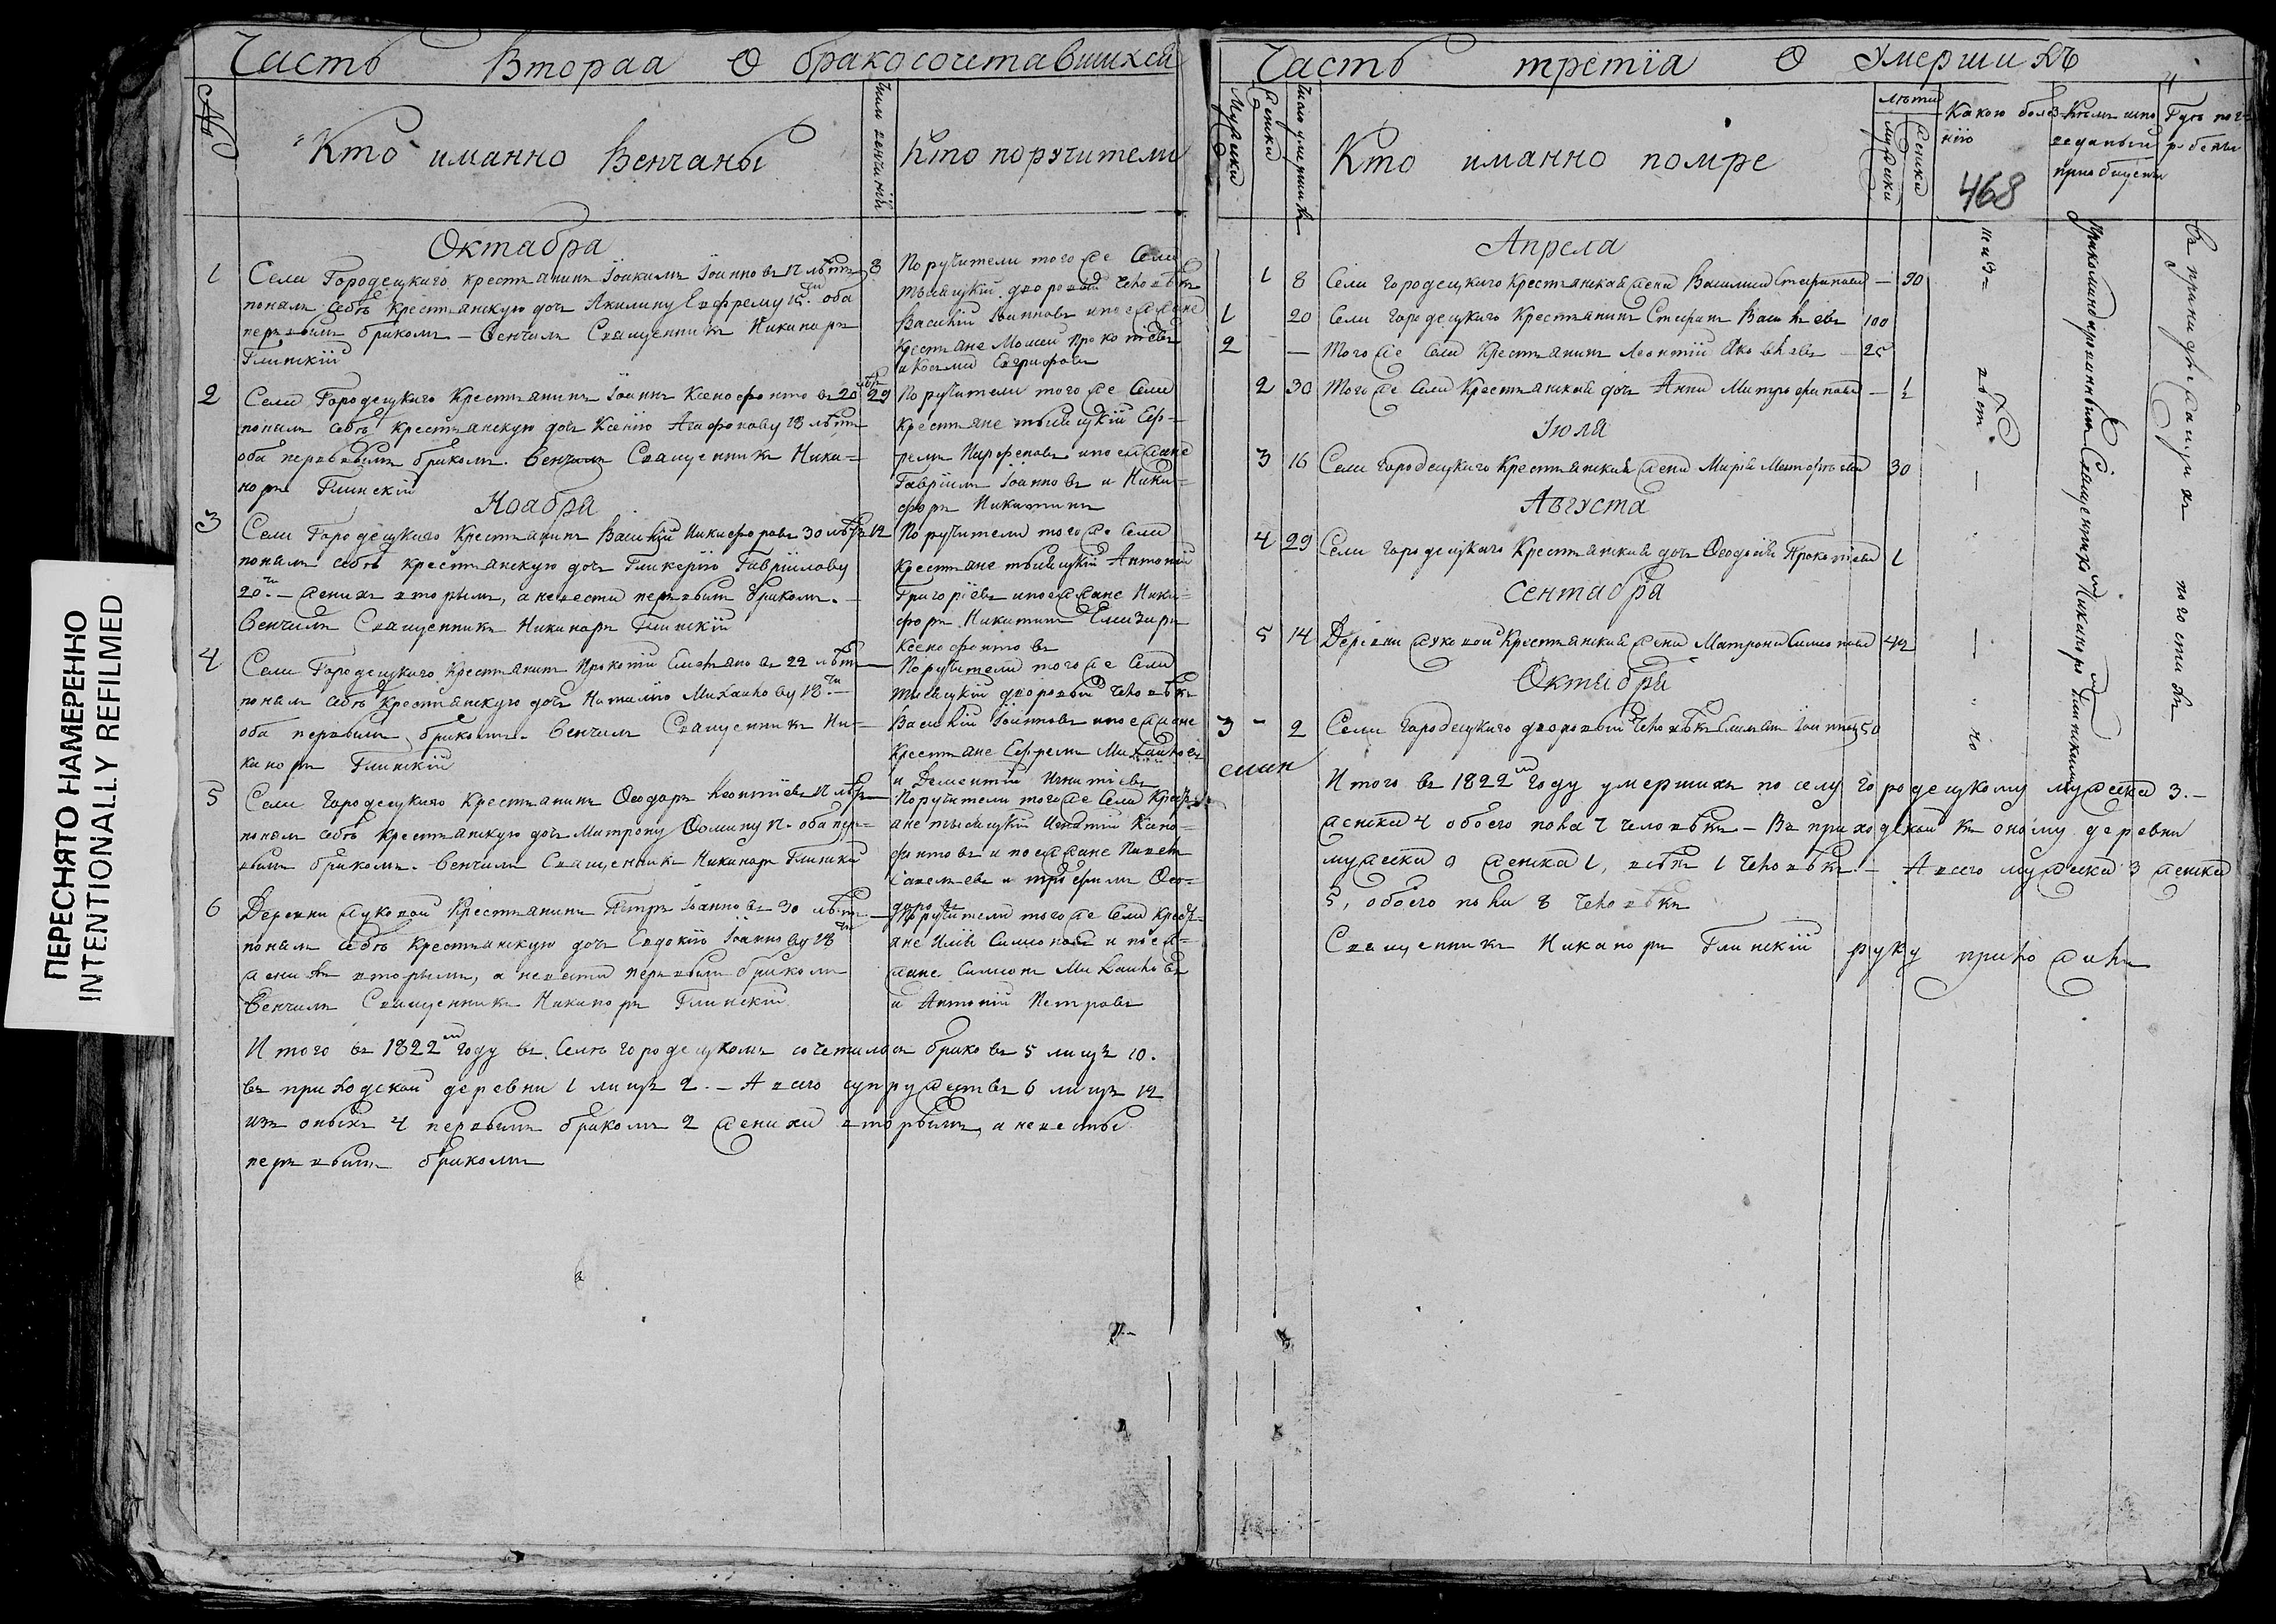 Часть Втораа О бракосочетавшихса
№
Кто иманно Венчаны
Кто поручители
Октабра
1
Села Городецкаго крестьянинъ Іоакимъ Іоанновъ 17 лѣтъ
8
понялъ себѣ крестьянскую дочь Акилину Ефремову оба
первымъ бракомъ – венчалъ Священникъ Никаноръ
Глинскій
Поручители того же Села
тысяцкій дворовой человѣкъ
Василій Іоанновъ и поезжане
крестьяне Моисей Прокопіевъ
и Косьма
2
Села Городецкаго Крестьянинъ Іоаннъ Ксенофонтовъ 20
29
понялъ себѣ крестьянскую дочь Ксенію Агафонову 18 лѣтъ
оба первымъ бракомъ. венчалъ Священникъ Ника=
норъ Глинскій
Поручители того же Села
крестьяне тысяцкій Еф=
ремъ Парфеновъ и поезжане
Гавріилъ Іоанновъ и Ники=
форъ Никитинъ
Ноабра
3
Села Городецкаго Крестьянинъ Василій Никифоровъ 30 лѣтъ
12
понялъ себѣ крестьянскую дочь Гликерію Гавріилову
20. – женихъ вторымъ, а невеста первымъ бракомъ. –
Венчалъ Священникъ Никаноръ Глинскій
Поручители того же Села
крестьяне тысяцкій Антоній
Григоріевъ и поезжане Ники=
форъ Никитинъ Елизаръ
Ксенофонтовъ
4
Села Городецкаго Крестьянинъ Прокопій Емельяновъ 22 лѣтъ –
понялъ себѣ крестьянскую дочь Наталію Михайлову 18. –
оба первымъ бракомъ. венчалъ Священникъ Ни=
каноръ Глинскій
Поручители того же Села
тысяцкій дворовый человѣкъ
Василій Іоанновъ и поезжане
крестьяне Ефремъ Михайловъ
и Дементій Игнатіевъ
5
Села Городецкаго Крестьянинъ Ѳеодоръ Леонтіевъ 17 лѣтъ –
понялъ себѣ крестьянскую дочь Матрону Ѳомину 17. оба пер=
вымъ бракомъ. венчалъ Священникъ Никаноръ Глинскій
Поручители того же Села Кресть=
ане тысяцкій Игнатій Ксено=
фонтовъ и поезжане Павелъ
Савельевъ и Трофимъ Ѳео=
доровъ
6
Деревни Жуковой Крестьянинъ Петръ Іоанновъ 30 лѣтъ –
понялъ себѣ крестьянскую дочь Евдокію Іоаннову 18
женихъ вторымъ, а невеста первымъ бракомъ
Венчалъ Священникъ Никаноръ Глинскій
Поручители того же Села Кресть=
ане Илія Симоновъ и поез=
жане Симонъ Михайловъ
и Антоній Петровъ
Итого въ 1822 году въ Селѣ Городецкомъ сочеталось браковъ 5 лицъ 10.
въ приходской деревни 1 лицъ 2. – А всего супружествъ 6 лицъ 12
изъ оныхъ 4 первымъ бракомъ 2 женихи вторымъ, а невесты
первымъ бракомъ
Часть третіа О Умершихъ
Мужска
женска
Число умершихъ
Кто иманно помре
лѣта
мужска
женска
Какою болез=
нію
468
Кѣмъ испо
веданы и
приобщены
Где пог=
ребены
Апрела
1 8 Села Городецкаго Крестьянская жена Василиса Стефанова – 90
1 20 Села Городецкаго Крестьянинъ Стефанъ Васильевъ 100
2 — Того же Села Крестьянинъ Леонтій Яковлевъ – 25
2 30 Того же Села Крестьянская дочь Анна Митрофанова –
Іюля
3 16 Села Городецкаго Крестьянская жена Марія 30
Августа
4 29 Села Городецкаго Крестьянская дочь Ѳеодосія Прокопіева 1
Сентабра
5 14 Деревни Жуковой Крестьянская жена Матрона Симонова 42
Октабра
3 – 2 Села Городецкаго дворовый человѣкъ Симеонъ Іоанновъ 50
неизъ
вест
но
Приходскимъ Священникомъ Никаноромъ Глинскимъ
въ приходскомъ
погостѣ
Итого въ 1822 году умершихъ по селу Городецкому мужска 3. –
женска 4 обоего пола 7 человѣкъ – Въ приходской къ оному деревни
мужска 0 женска 1, всѣхъ 1 человѣкъ – А всего мужска 3 женска
5, обоего пола 8 человѣкъ
Священникъ Никаноръ Глинскій руку приложилъ
ПЕРЕСНЯТО НАМЕРЕННО
INTENTIONALLY REFILMED